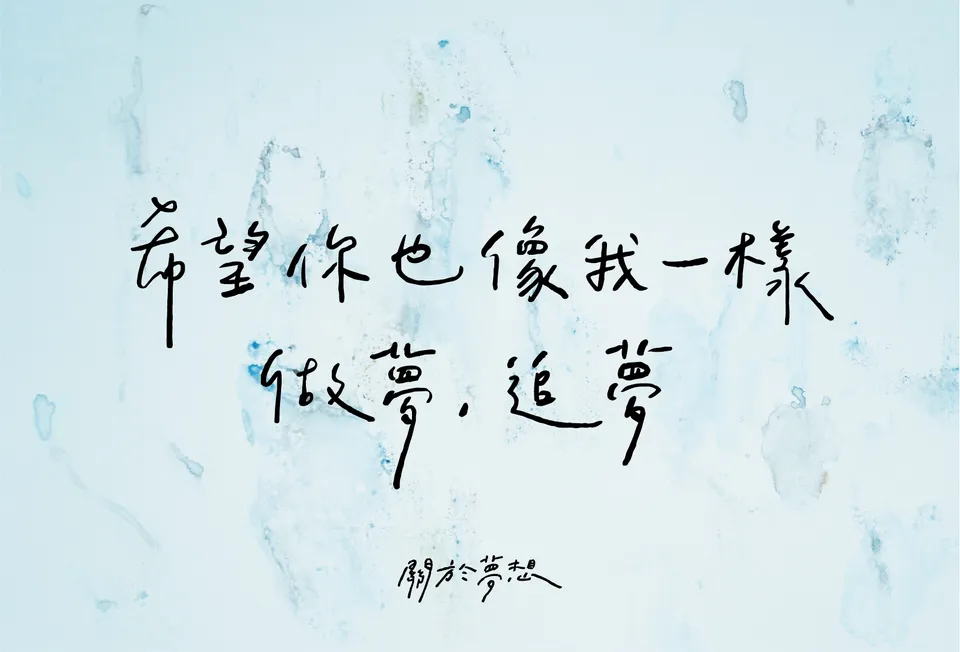 希望你也像我一樣
做夢，追夢
關於夢想